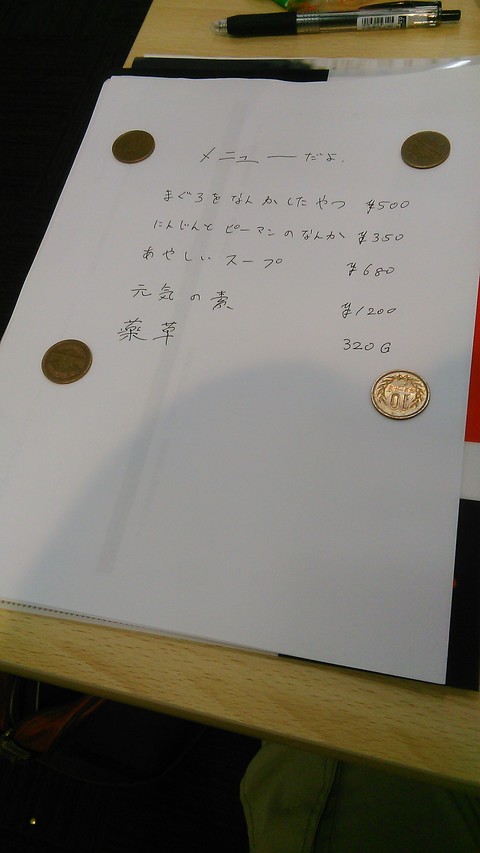 メニューだよ.
まぐろをなんかしたやつ ¥500
にんじんと ピーマンのなんか ¥350
あやしい スープ ¥680
元気の素 ¥1200
薬草 320G
10